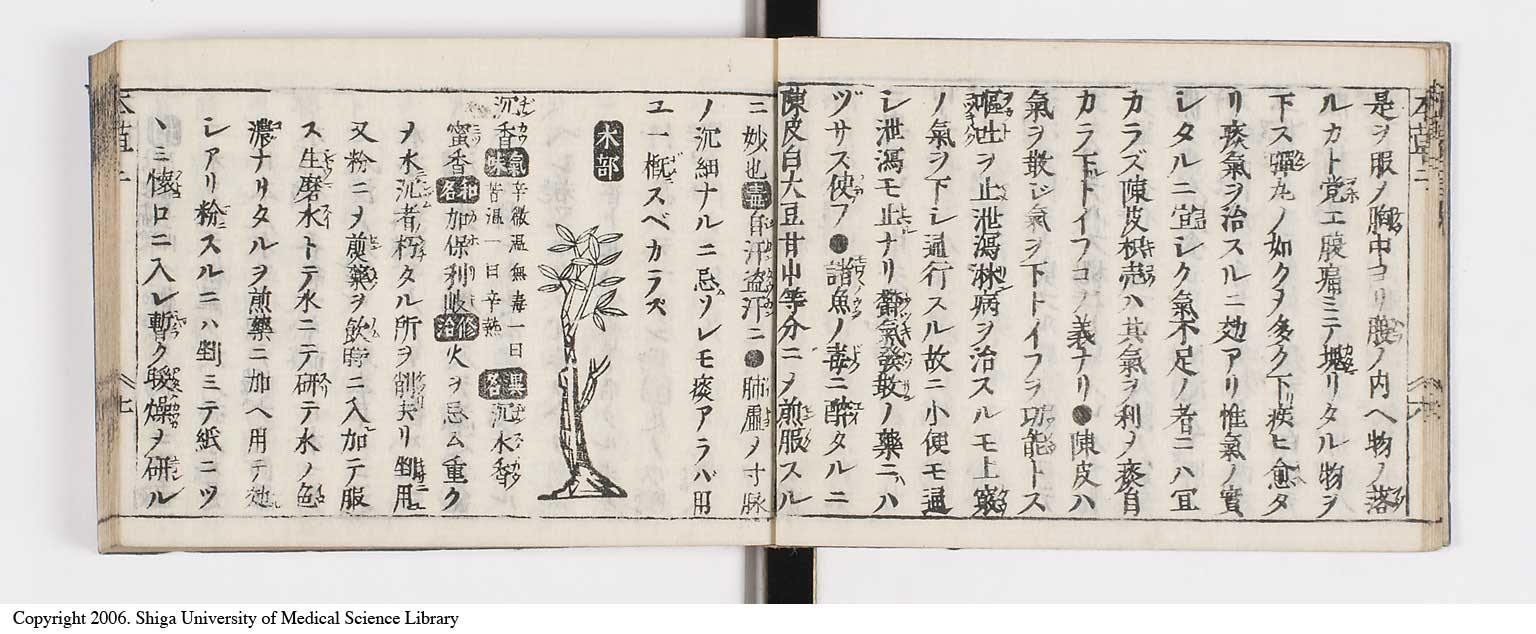 是ヲ服ノ胸中ヨリ腹ノ内ヘ物ノ落
ルカト覚エ腹痛ミテ塊リタル物ヲ
下ス彈丸ノ如クヲ多ク下疾ヒ愈タ
リ痰氣ヲ治スルニ効アリ惟氣ノ實
シタルニ宜シク氣不足ノ者ニハ冝
カラズ陳皮枳売ハ其氣ヲ利ノ痰自
カラ下トイフコノ義ナリ●陳皮ハ
氣ヲ散シ氣ヲ下トイフヲ功能トス
嘔吐ヲ止泄瀉淋病ヲ治スルモ上竅
ノ氣ヲ下シ通行スル故ニ小便モ通
シ泄瀉モ止ナリ欝氣發散ノ藥ニハ
ヅサス使フ●諸魚ノ毒ニ醉タルニ
陳皮白大豆甘艸等分ニノ煎服スル
ニ妙也 毒 自汗盗汗ニ●肺虛ノ寸脉
ノ沉細ナルニ忌ソレモ痰アラバ用
ユ一槪スベカラズ
木部
沉香 氣味 辛微温無毒一曰苦温一曰辛熱 異名 沉水香
蜜香 和名 加保利 修治 火ヲ忌ム重ク
ノ水沉者朽タル所ヲ削去リ剉用
又粉ニヲ煎藥ヲ飲時ニ入加テ服
ス生磨水トテ水ニテ研テ水ノ色
濃ナリタルヲ煎藥ニ加ヘ用テ
シアリ粉スルニハ剉ミテ紙ニツ
ヽミ懐ロニ入レ暫ク暖燥ヲ研ル
本草二
七
Copyright 2006. Shiga University of Medical Science Library